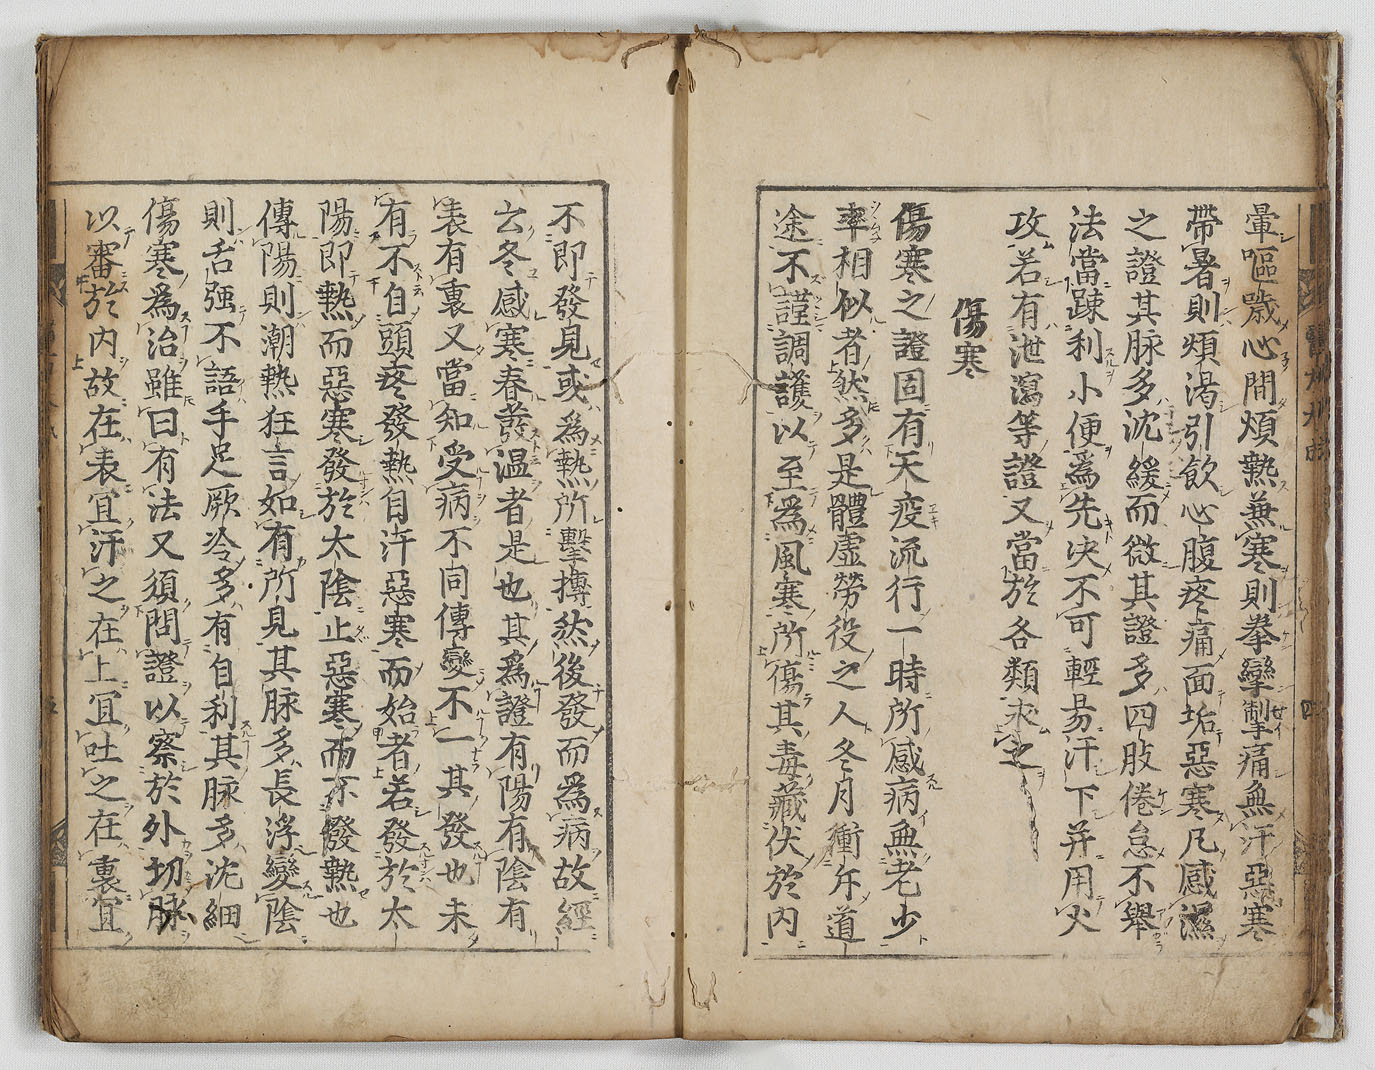 暈嘔歲心間煩熱兼寒則拳攣掣痛無汗惡寒
帶暑則煩渴引飲心腹疼痛面垢惡寒凡感濕
之證其脉多沈緩而微其證多四肢倦怠不舉
法當踈利小便為先决不可輕易汗下并用火
攻若有泄瀉等證又當於各類求之
傷寒
傷寒之證固有天疫流行一時所感病無老少
率相似者然多是體虛勞役之人冬月衝斥道
途不謹調護以至為風寒所傷其毒藏伏於內
不即發見或為熱所擊摶然後發而為病故經
云冬感寒春發温者是也其為證有陽有陰有
表有裏又當知受病不同傳變不一其發也未
有不自頭疼發熱自汗惡寒而始者若發於太
陽即熱而惡寒發於太陰止惡寒而不發熱也
傳陽則潮熱狂言如有所見其脉多長浮變陰
則舌强不語手足厥冷多有自利其脉多沈細
傷寒為治雖曰有法又須問證以察於外切脉
以審於內故在表宜汗之在上宜吐之在裏宜